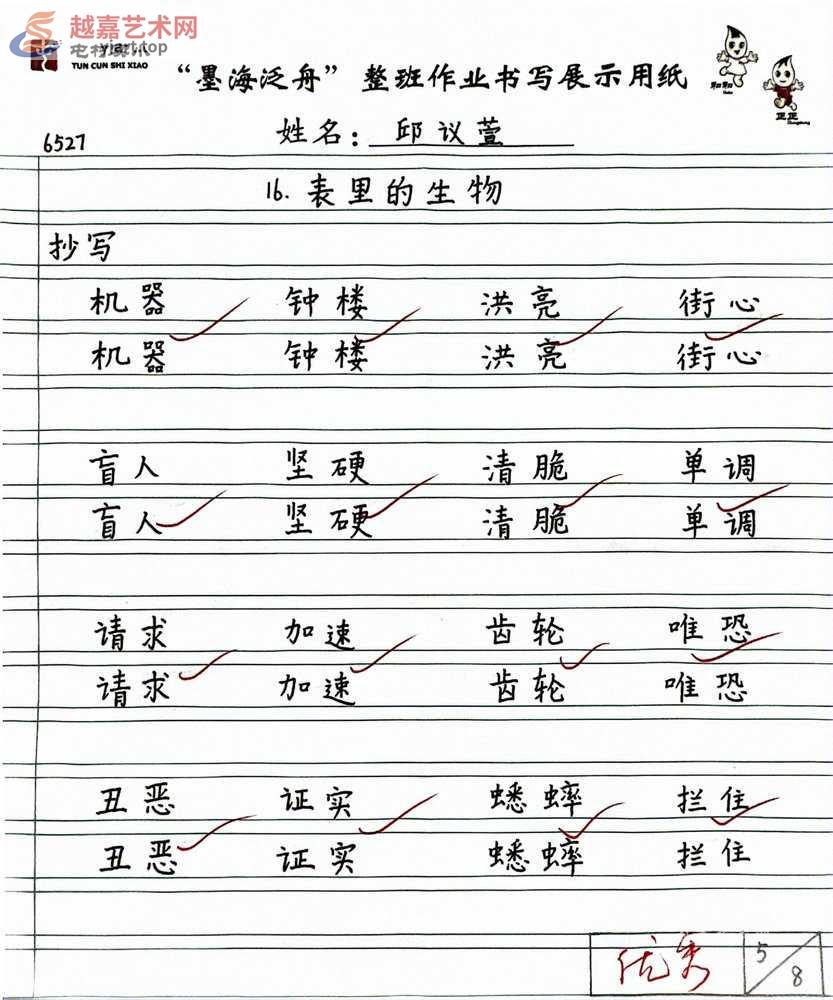 越嘉艺术网
yjart.top
TUN CUN SHI XIAO
“墨海泛舟”整班作业书写展示用纸
和和
正正
6527
姓名：邱议萱
16.表里的生物
抄写
机器 钟楼 洪亮 街心
机器 钟楼 洪亮 街心
盲人 坚硬 清脆 单调
盲人 坚硬 清脆 单调
请求 加速 齿轮 唯恐
请求 加速 齿轮 唯恐
丑恶 证实 蟋蟀 拦住
丑恶 证实 蟋蟀 拦住
优秀 5/8